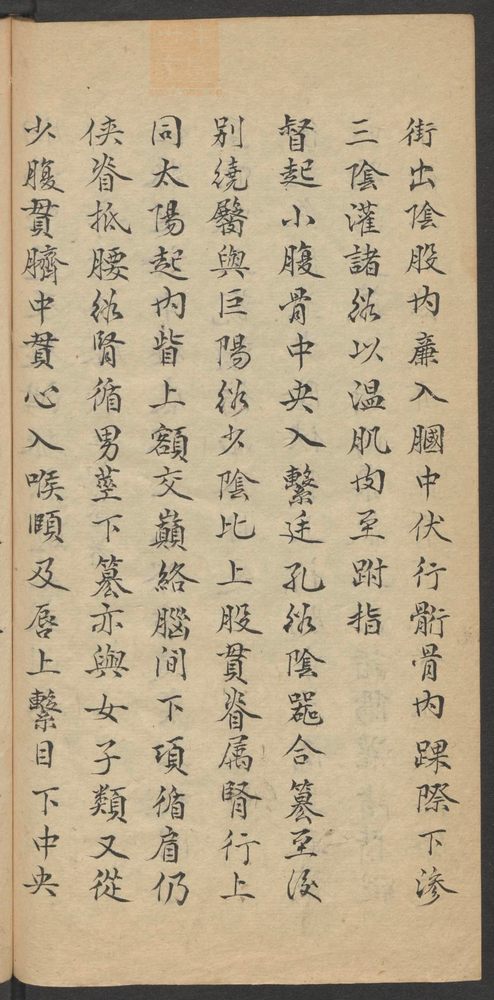 街出陰股内廉入膕中伏行䯒骨内踝際下滲
三陰灌諸絡以温肌肉至跗指
督起小腹骨中央入繫廷孔絡陰器合篡至後
别繞臀與巨陽絡少陰比上股貫脊属腎行上
同太陽起内眥上額交巔絡腦間下項循肩仍
侠脊抵腰絡腎循男莖下篡亦與女子類又從
少腹貫臍中貫心入喉頤及唇上繫目下中央